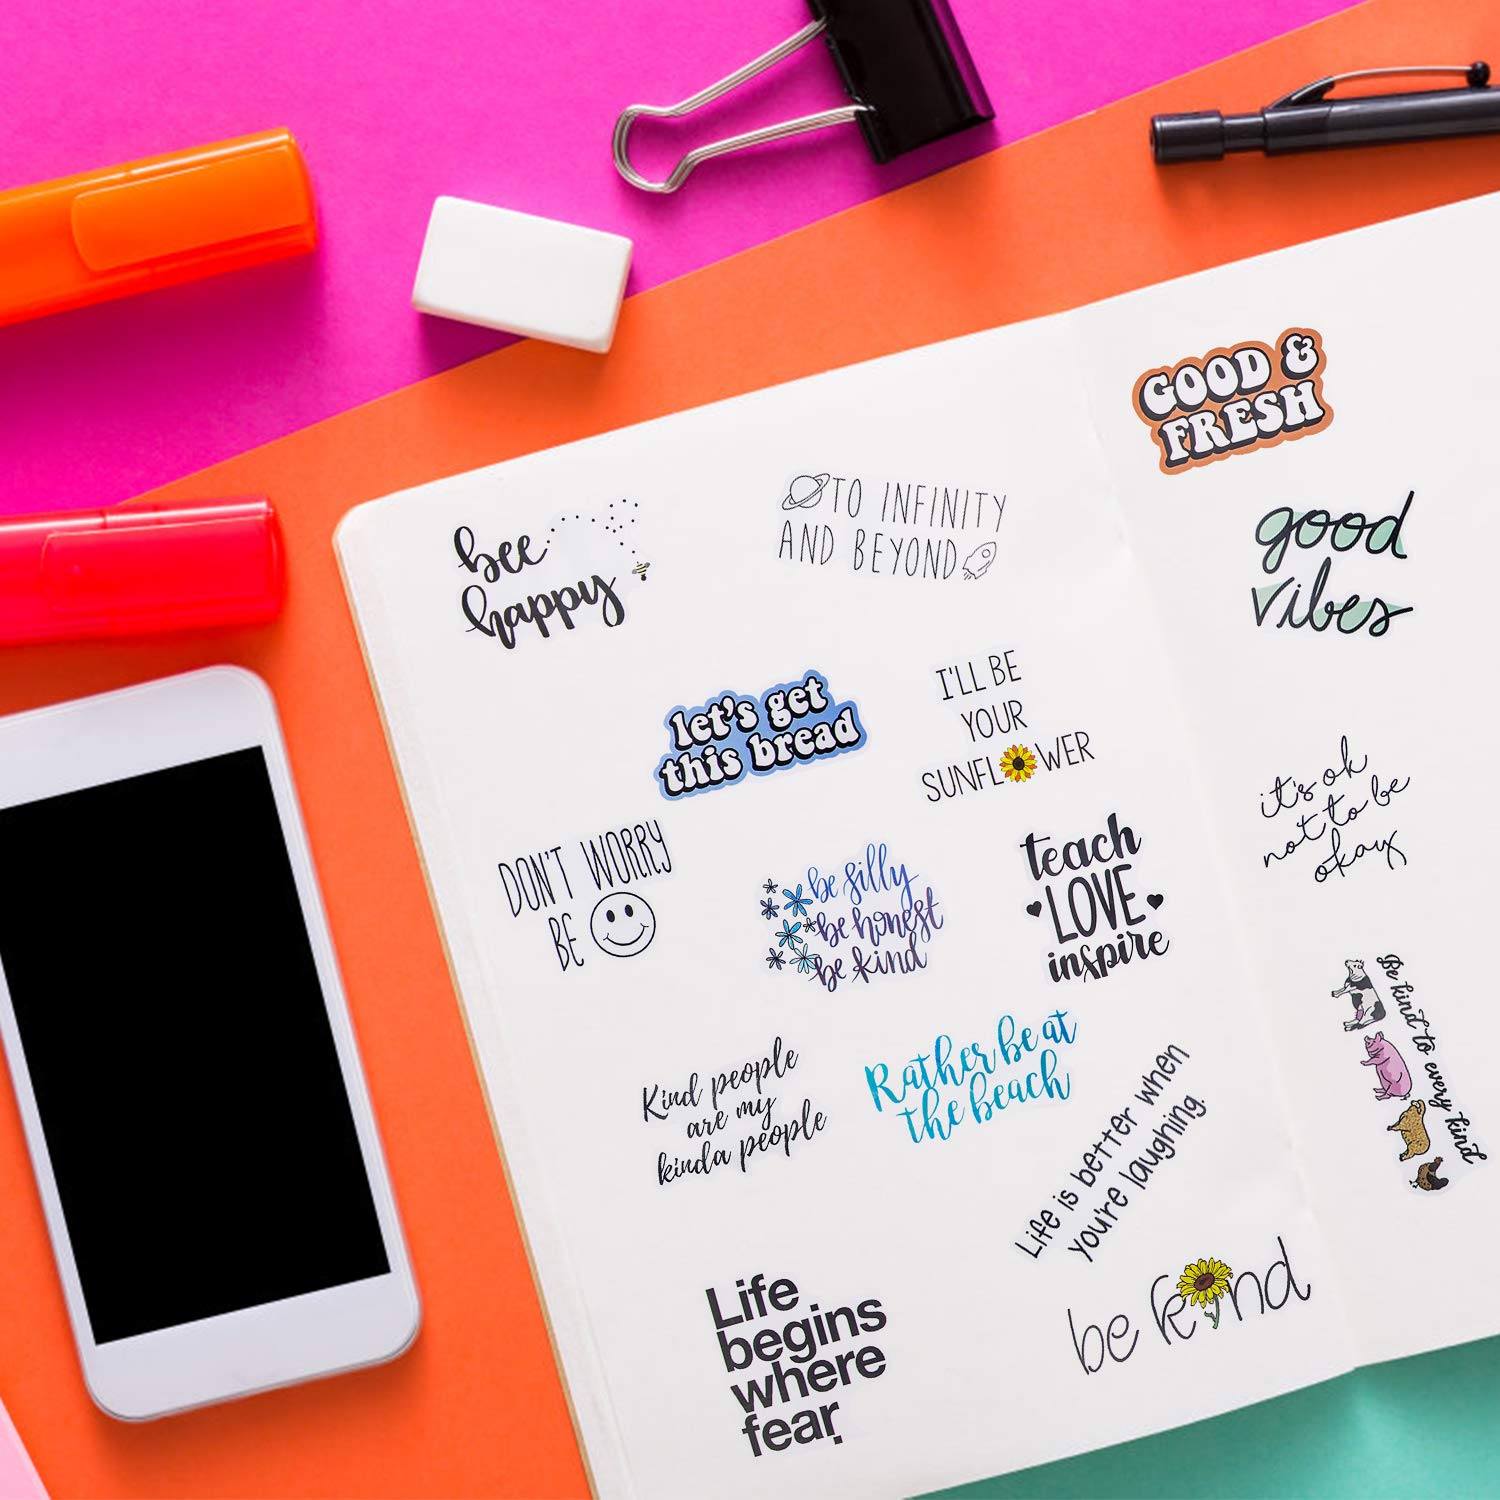 GOOD &
FRESH
bee
happy
TO INFINITY
AND BEYOND
good
vibes
let's get
this bread
I'LL BE
YOUR
SUNFLWER
it's ok
not to be
okay
DON'T WORRY
BE
be silly
be honest
be kind
teach
LOVE
inspire
Be kind to every kind
Kind people
are my
kinda people
Rather be at
the beach
Life is better when
you're laughing.
be kind
Life
begins
where
fear.